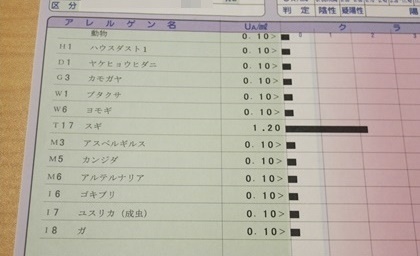 区分
判定 陰性 疑陽性 陽
アレルゲン名 UA/ml ク ラ
0 1 2 3
動物 0.10>
H1 ハウスダスト1 0.10>
D1 ヤケヒョウヒダニ 0.10>
G3 カモガヤ 0.10>
W1 ブタクサ 0.10>
W6 ヨモギ 0.10>
T17 スギ 1.20
M3 アスペルギルス 0.10>
M5 カンジダ 0.10>
M6 アルテルナリア 0.10>
I6 ゴキブリ 0.10>
I7 ユスリカ (成虫) 0.10>
I8 ガ 0.10>